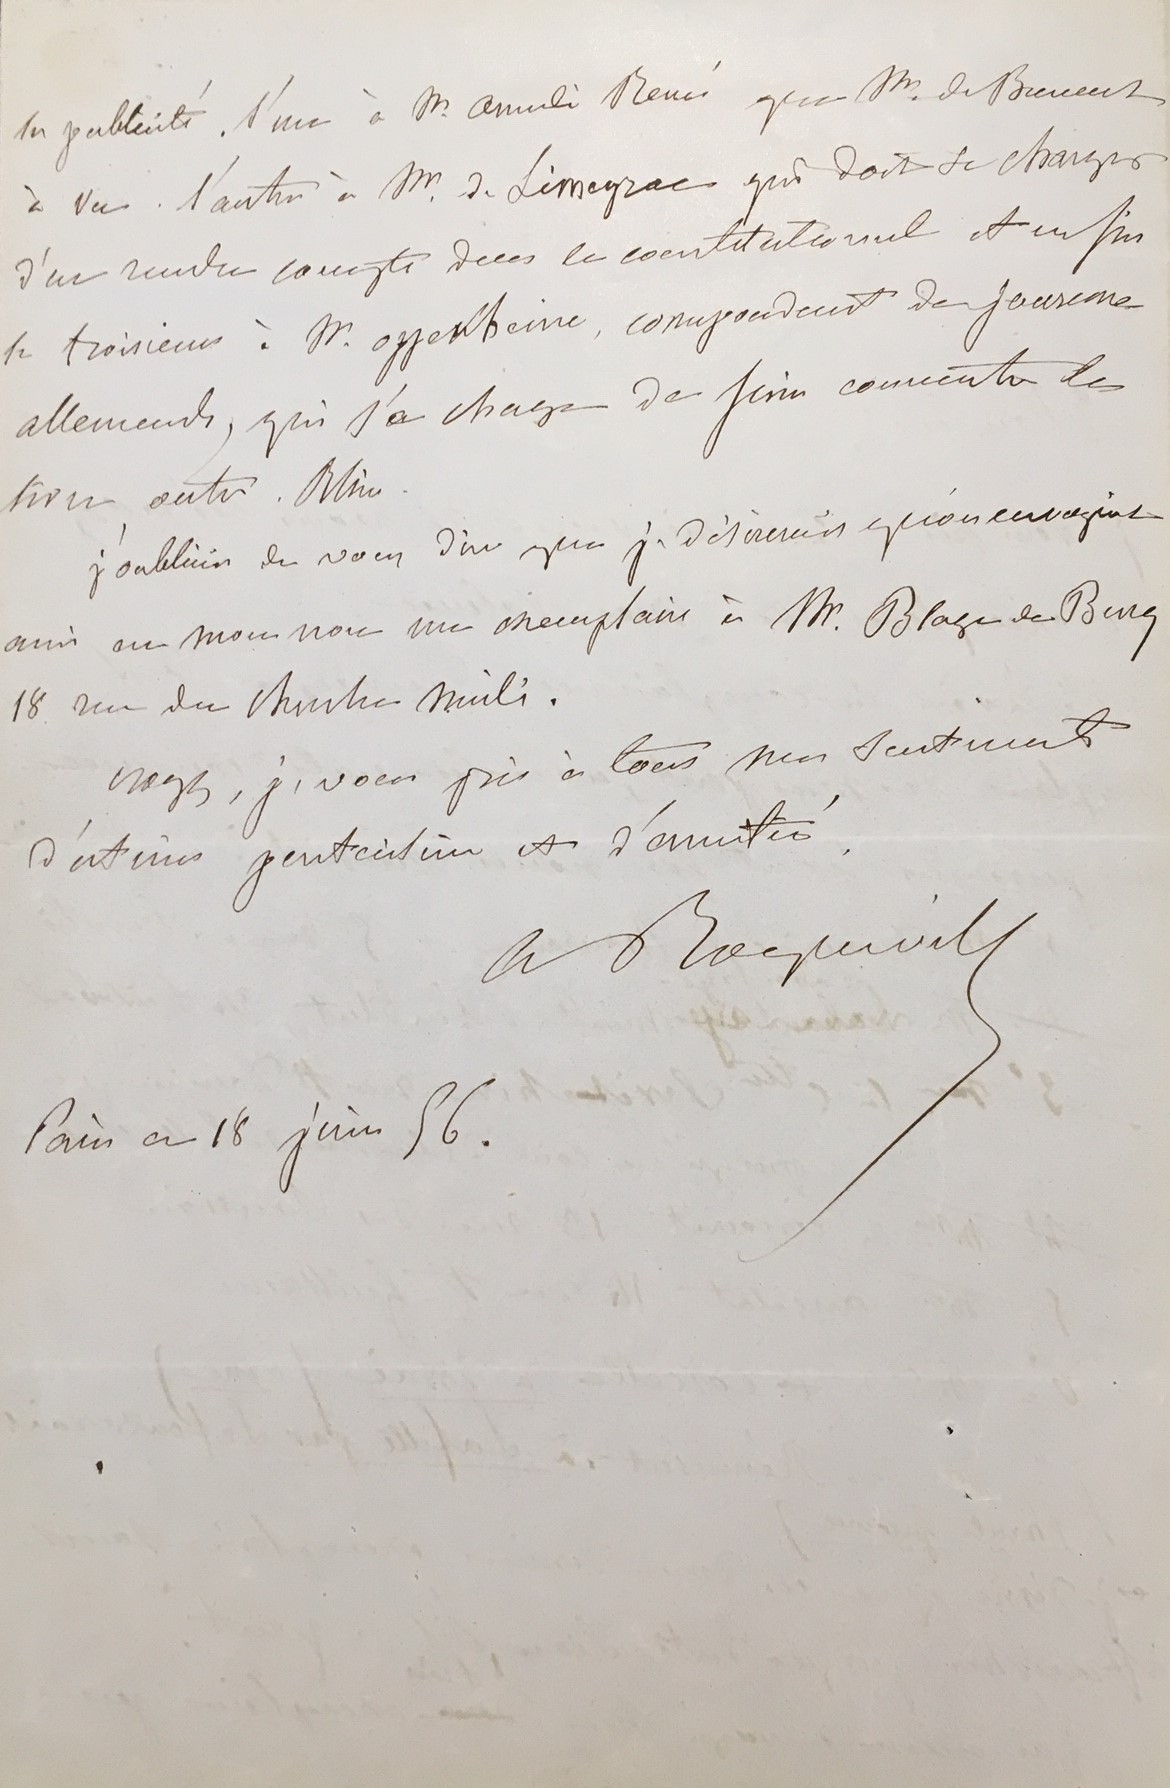 la publicité, l'un à M. Amédée René que M. de Beaumont
a vu. l'autre à M. de Limeyrac qui doit se charger
d'en rendre compte dans le constitutionnel et enfin
le troisieme à M. oppenheim, correspondant de journaux
allemands, qui s'est chargé de faire connaitre le
livre outre Rhin.
j'oubliais de vous dire que je désirerais qu'on envoyat
aussi en mon nom un exemplaire à M. Blaze de Bury
18 rue du Cherche Midi.
Croyez, je vous prie à tous mes sentiments
d'estime particulière et d'amitié.
A Tocqueville
Paris ce 18 juin 56.